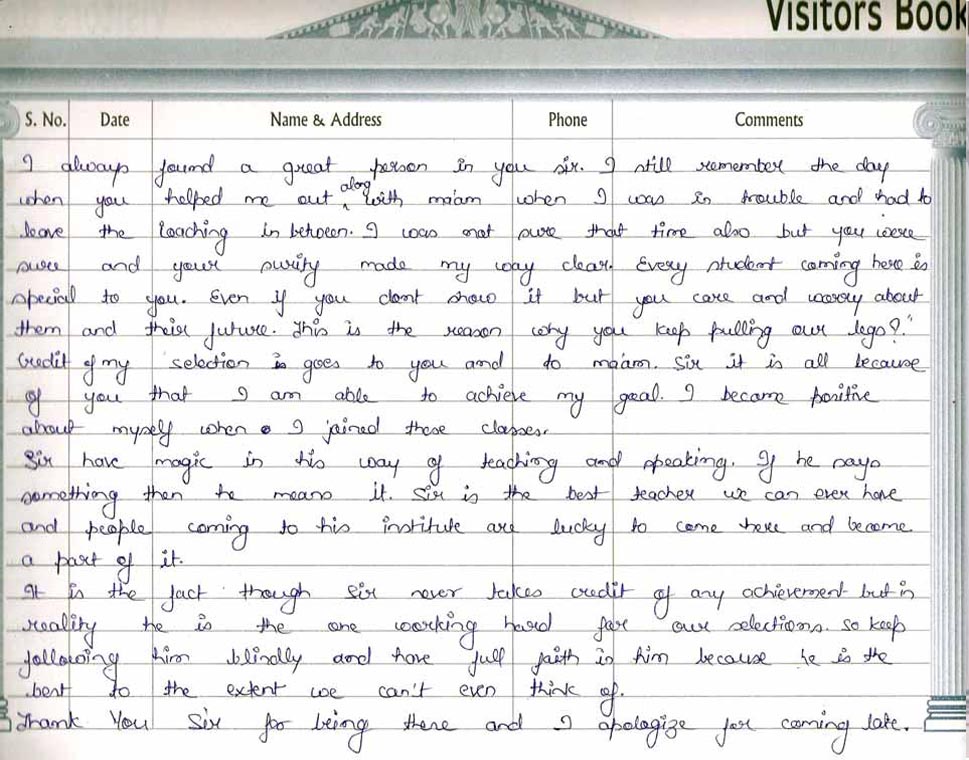 Visitors Book
S. No. Date Name & Address Phone Comments
I always found a great person in you sir. I still remember the day
when you helped me out along with ma'am when I was in trouble and had to
leave the teaching in between. I was not sure that time also but you were
sure and your purity made my way clear. Every student coming here is
special to you. Even if you dont show it but you care and worry about
them and their future. This is the reason why you keep pulling our legs?"
Credit of my selection goes to you and to ma'am. Sir it is all because
of you that I am able to achieve my goal. I became positive
about myself when I joined these classes.
Sir have magic in his way of teaching and speaking. If he says
something then he means it. Sir is the best teacher we can ever have
and people coming to his institute are lucky to come here and become
a part of it.
It is the fact though Sir never takes credit of any achievement but in
reality he is the one working hard for our selections. So keep
following him blindly and have full faith in him because he is the
best to the extent we can't even think of.
Thank You Sir for being there and I apologize for coming late.